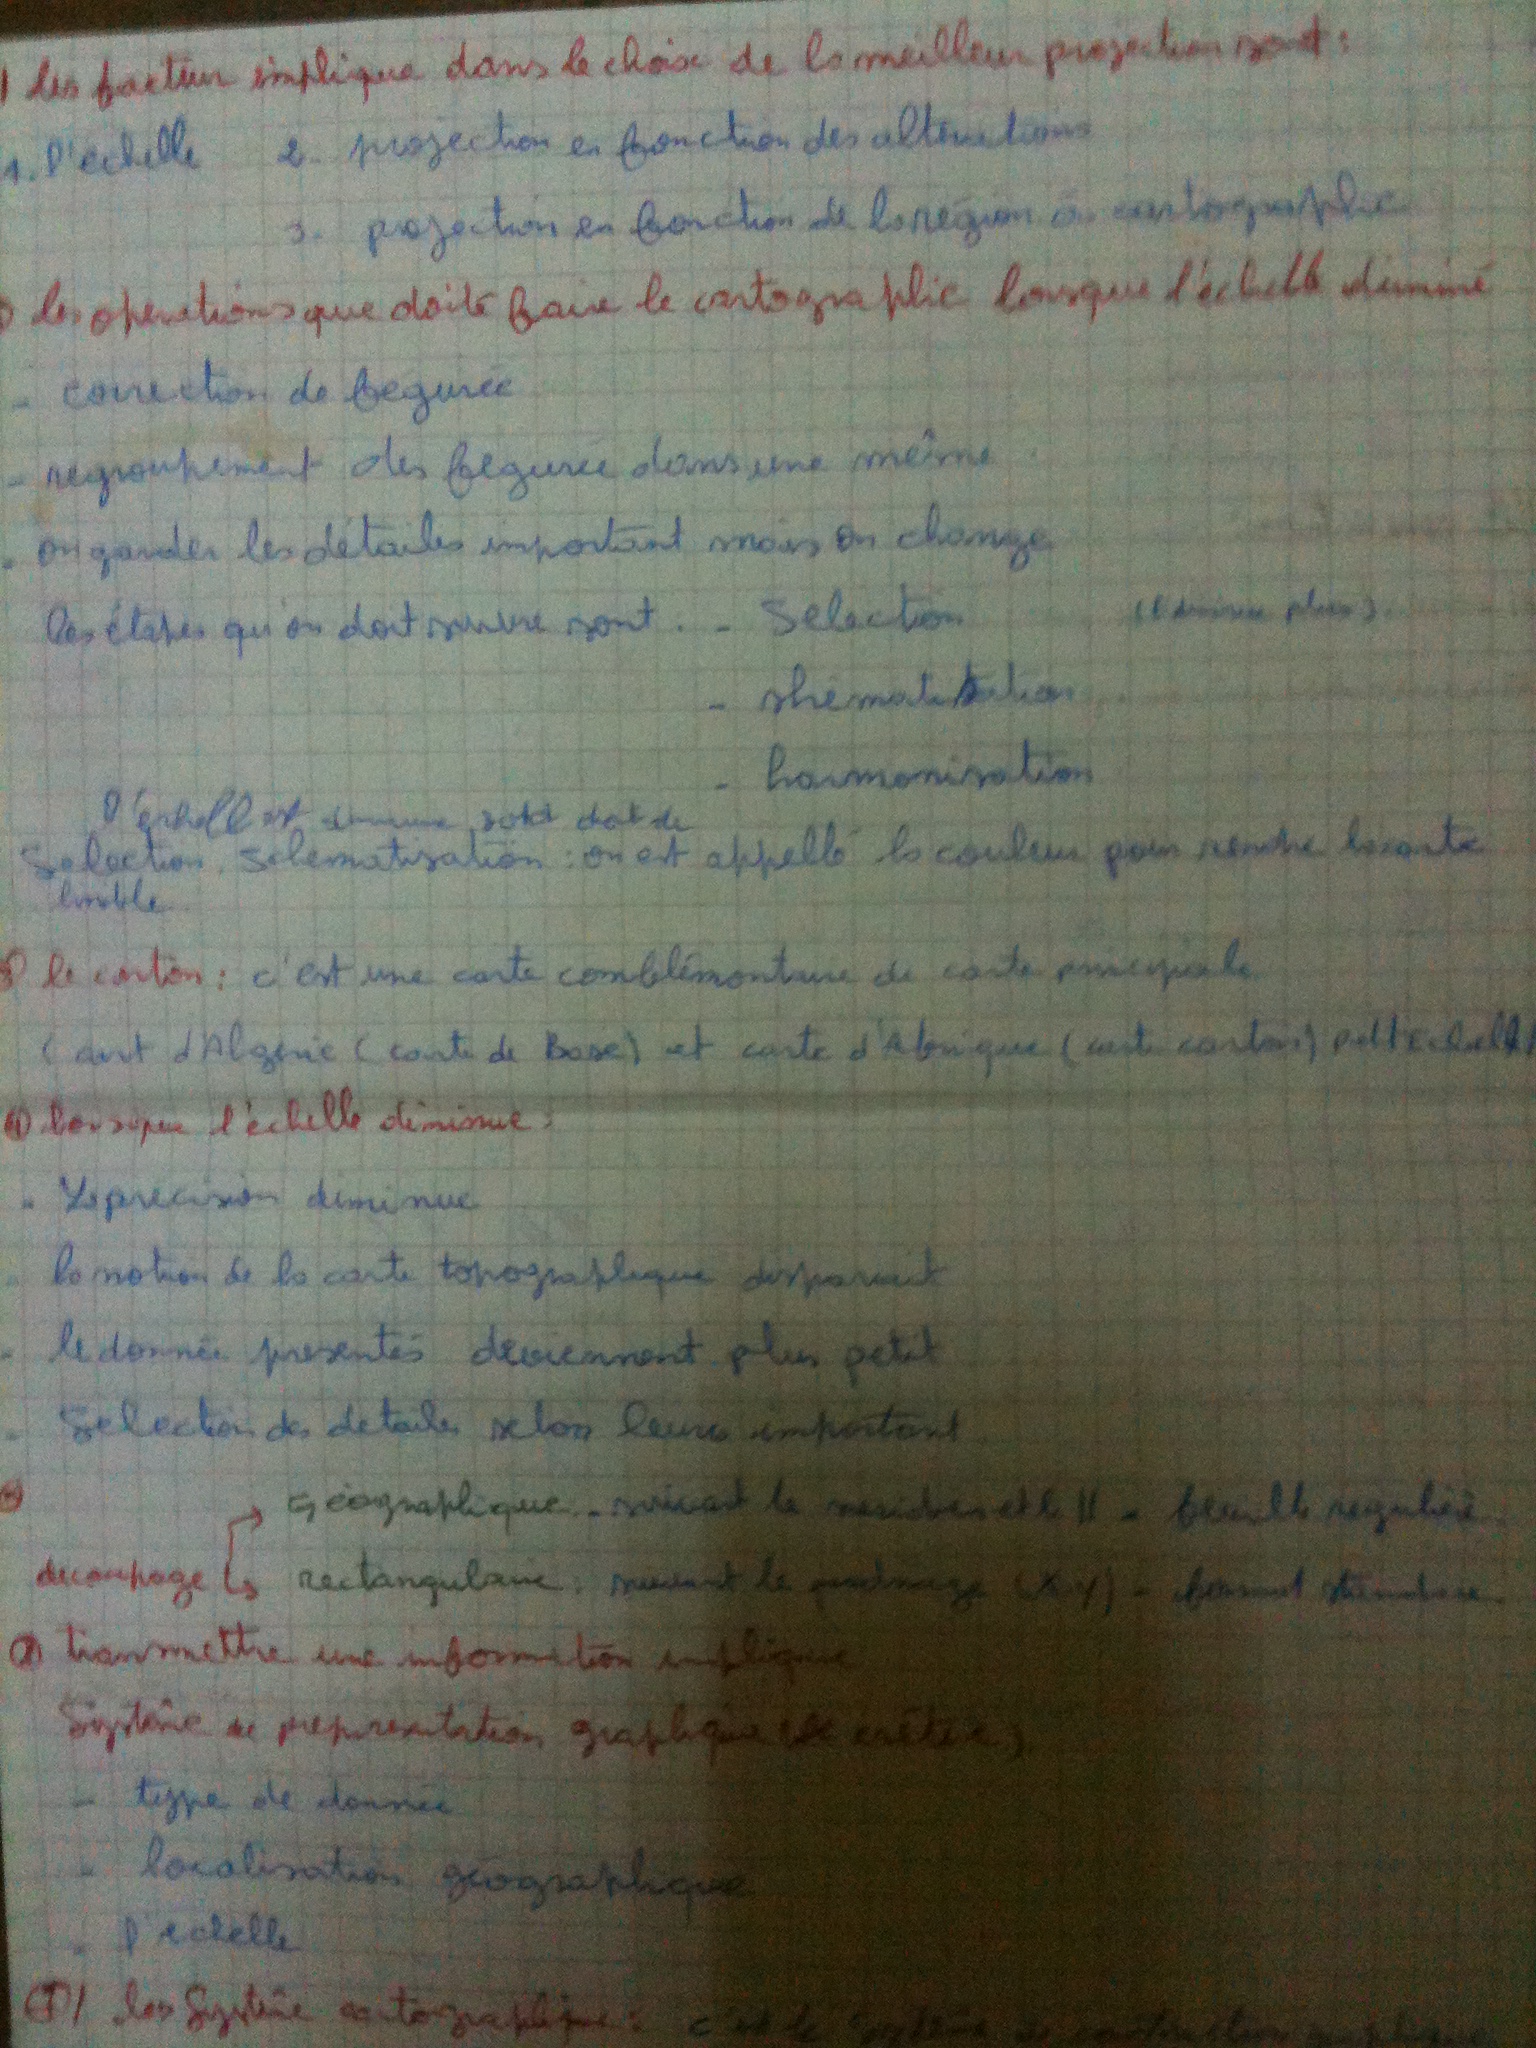 les facteur implique dans le choix de la meilleur projection sont :
1. l'échelle 2. projection en fonction des altérations
3. projection en fonction de la région à cartographie
les operations que doité faire le cartographie lorsque l'échelle diminué
- correction de fegurée
- regroupement des fegurée dans une même
- on garder les détailes important mais on change
les étapes qu'on doit suivre sont. - Selection (diminue plus).
- shematisation
- harmonisation
l'echelle est
Selection, Schematisation : on est appellé la couleur pour rendre la carte
lisible
3) le carton : c'est une carte complémentaire de carte principale
(cart d'Algérie (carte de Base) et carte d'Afrique (carte carton) petit echelle)
4) lorsque l'échelle diminue :
- La precision diminue
- la notion de la carte topographique disparait
- le donnée presentés deviennent plus petit
- Selection des detailes selon leurs important
Géographique - suivant le meridien et le // - feuille regulière
decoupage rectangulaire : suivant le (X, Y) - format
transmettre une information implique
Système de representation graphique
- type de donnée
- localisation géographique
- l'echelle
les Système cartographique : c'est le système de construction graphique